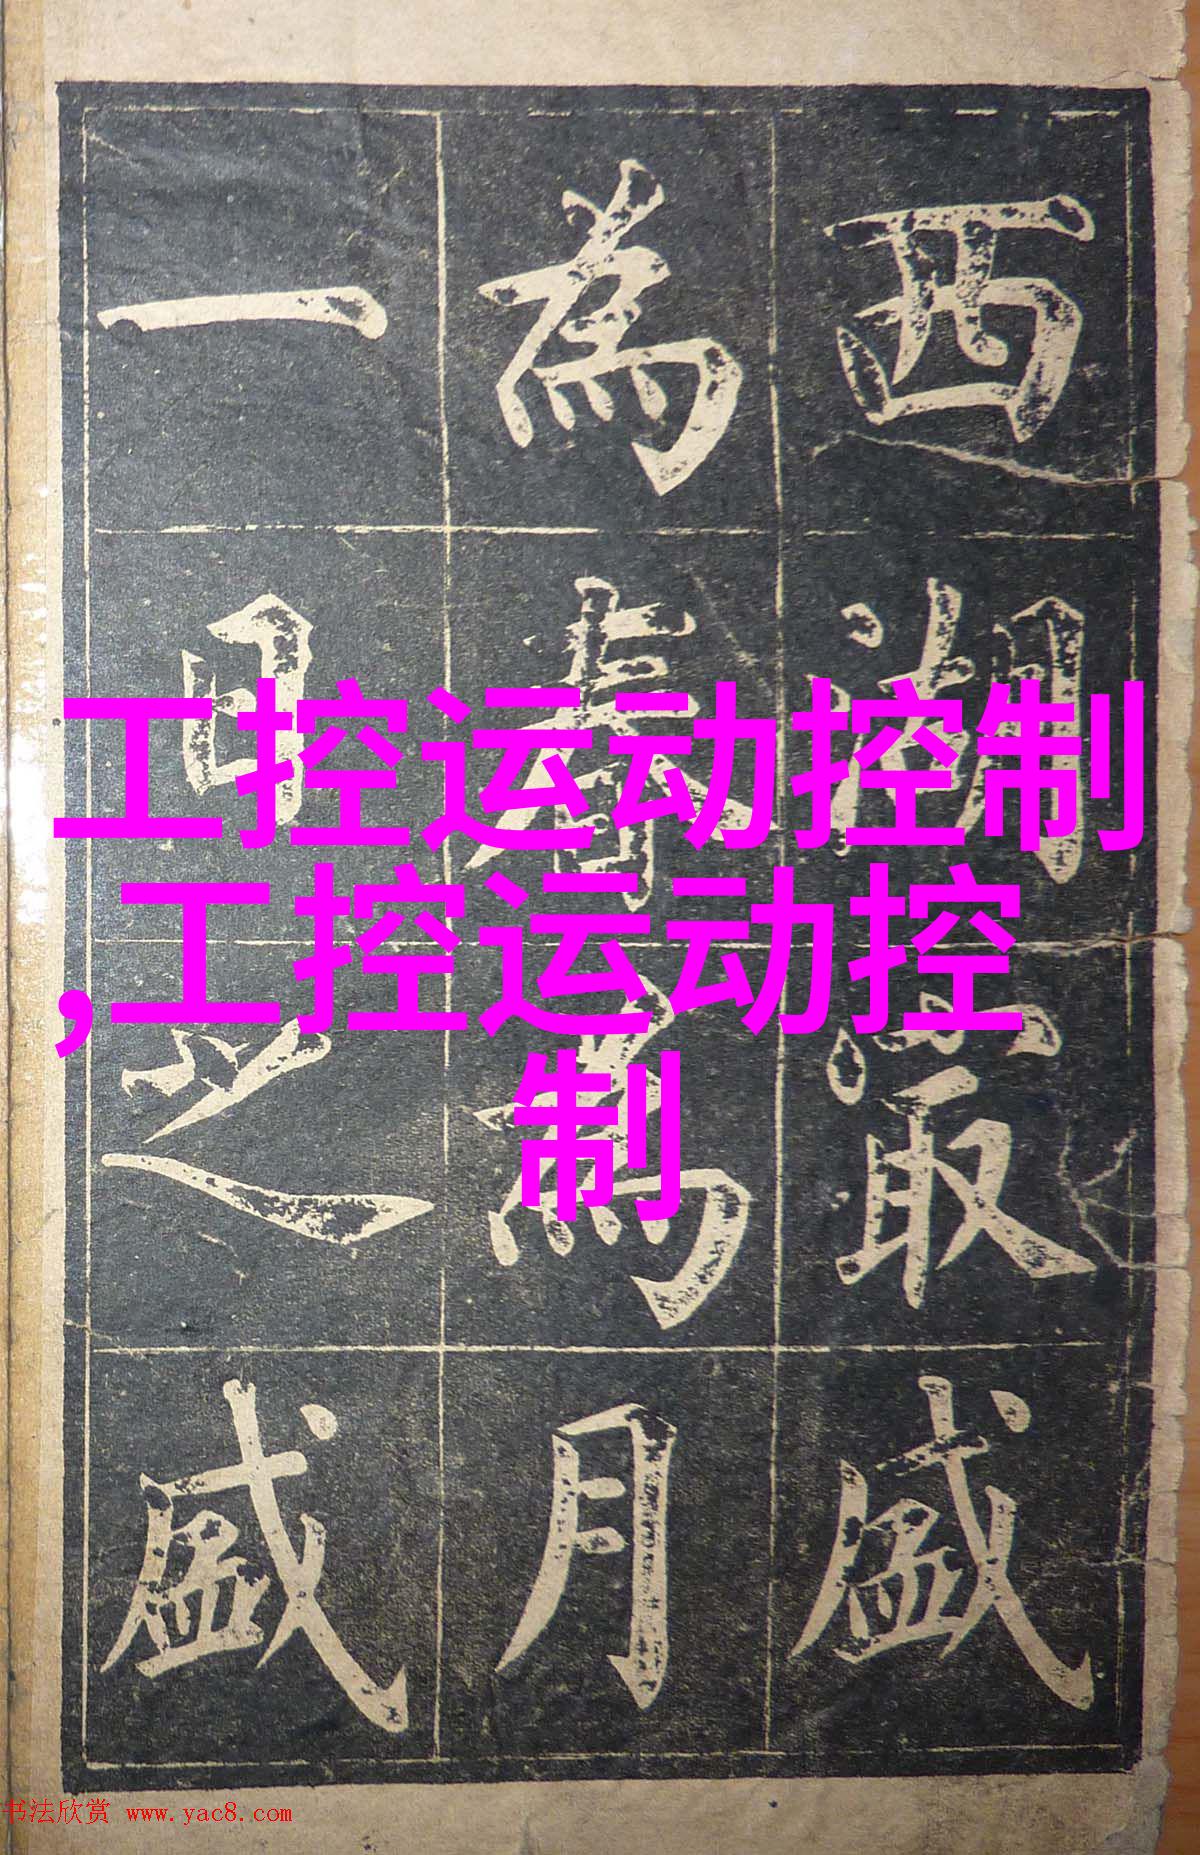 西湖最盛
為春為月
一日之盛
工控运动控制
,工控运动控
制
书法欣赏 www.yac8.com